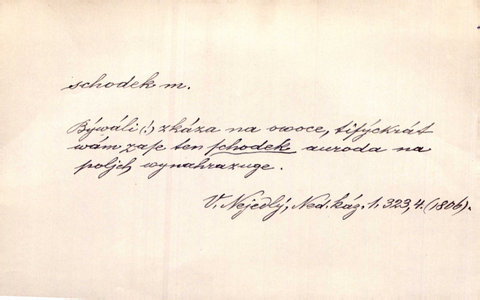 schodek m.
Býwáli (!) zkáza na owoce, tisýckrát
wám zase ten schodek auroda na
poljch wynahrazuge.
V. Nejedlý, Ned. káz. 1. 323, 4. (1806).